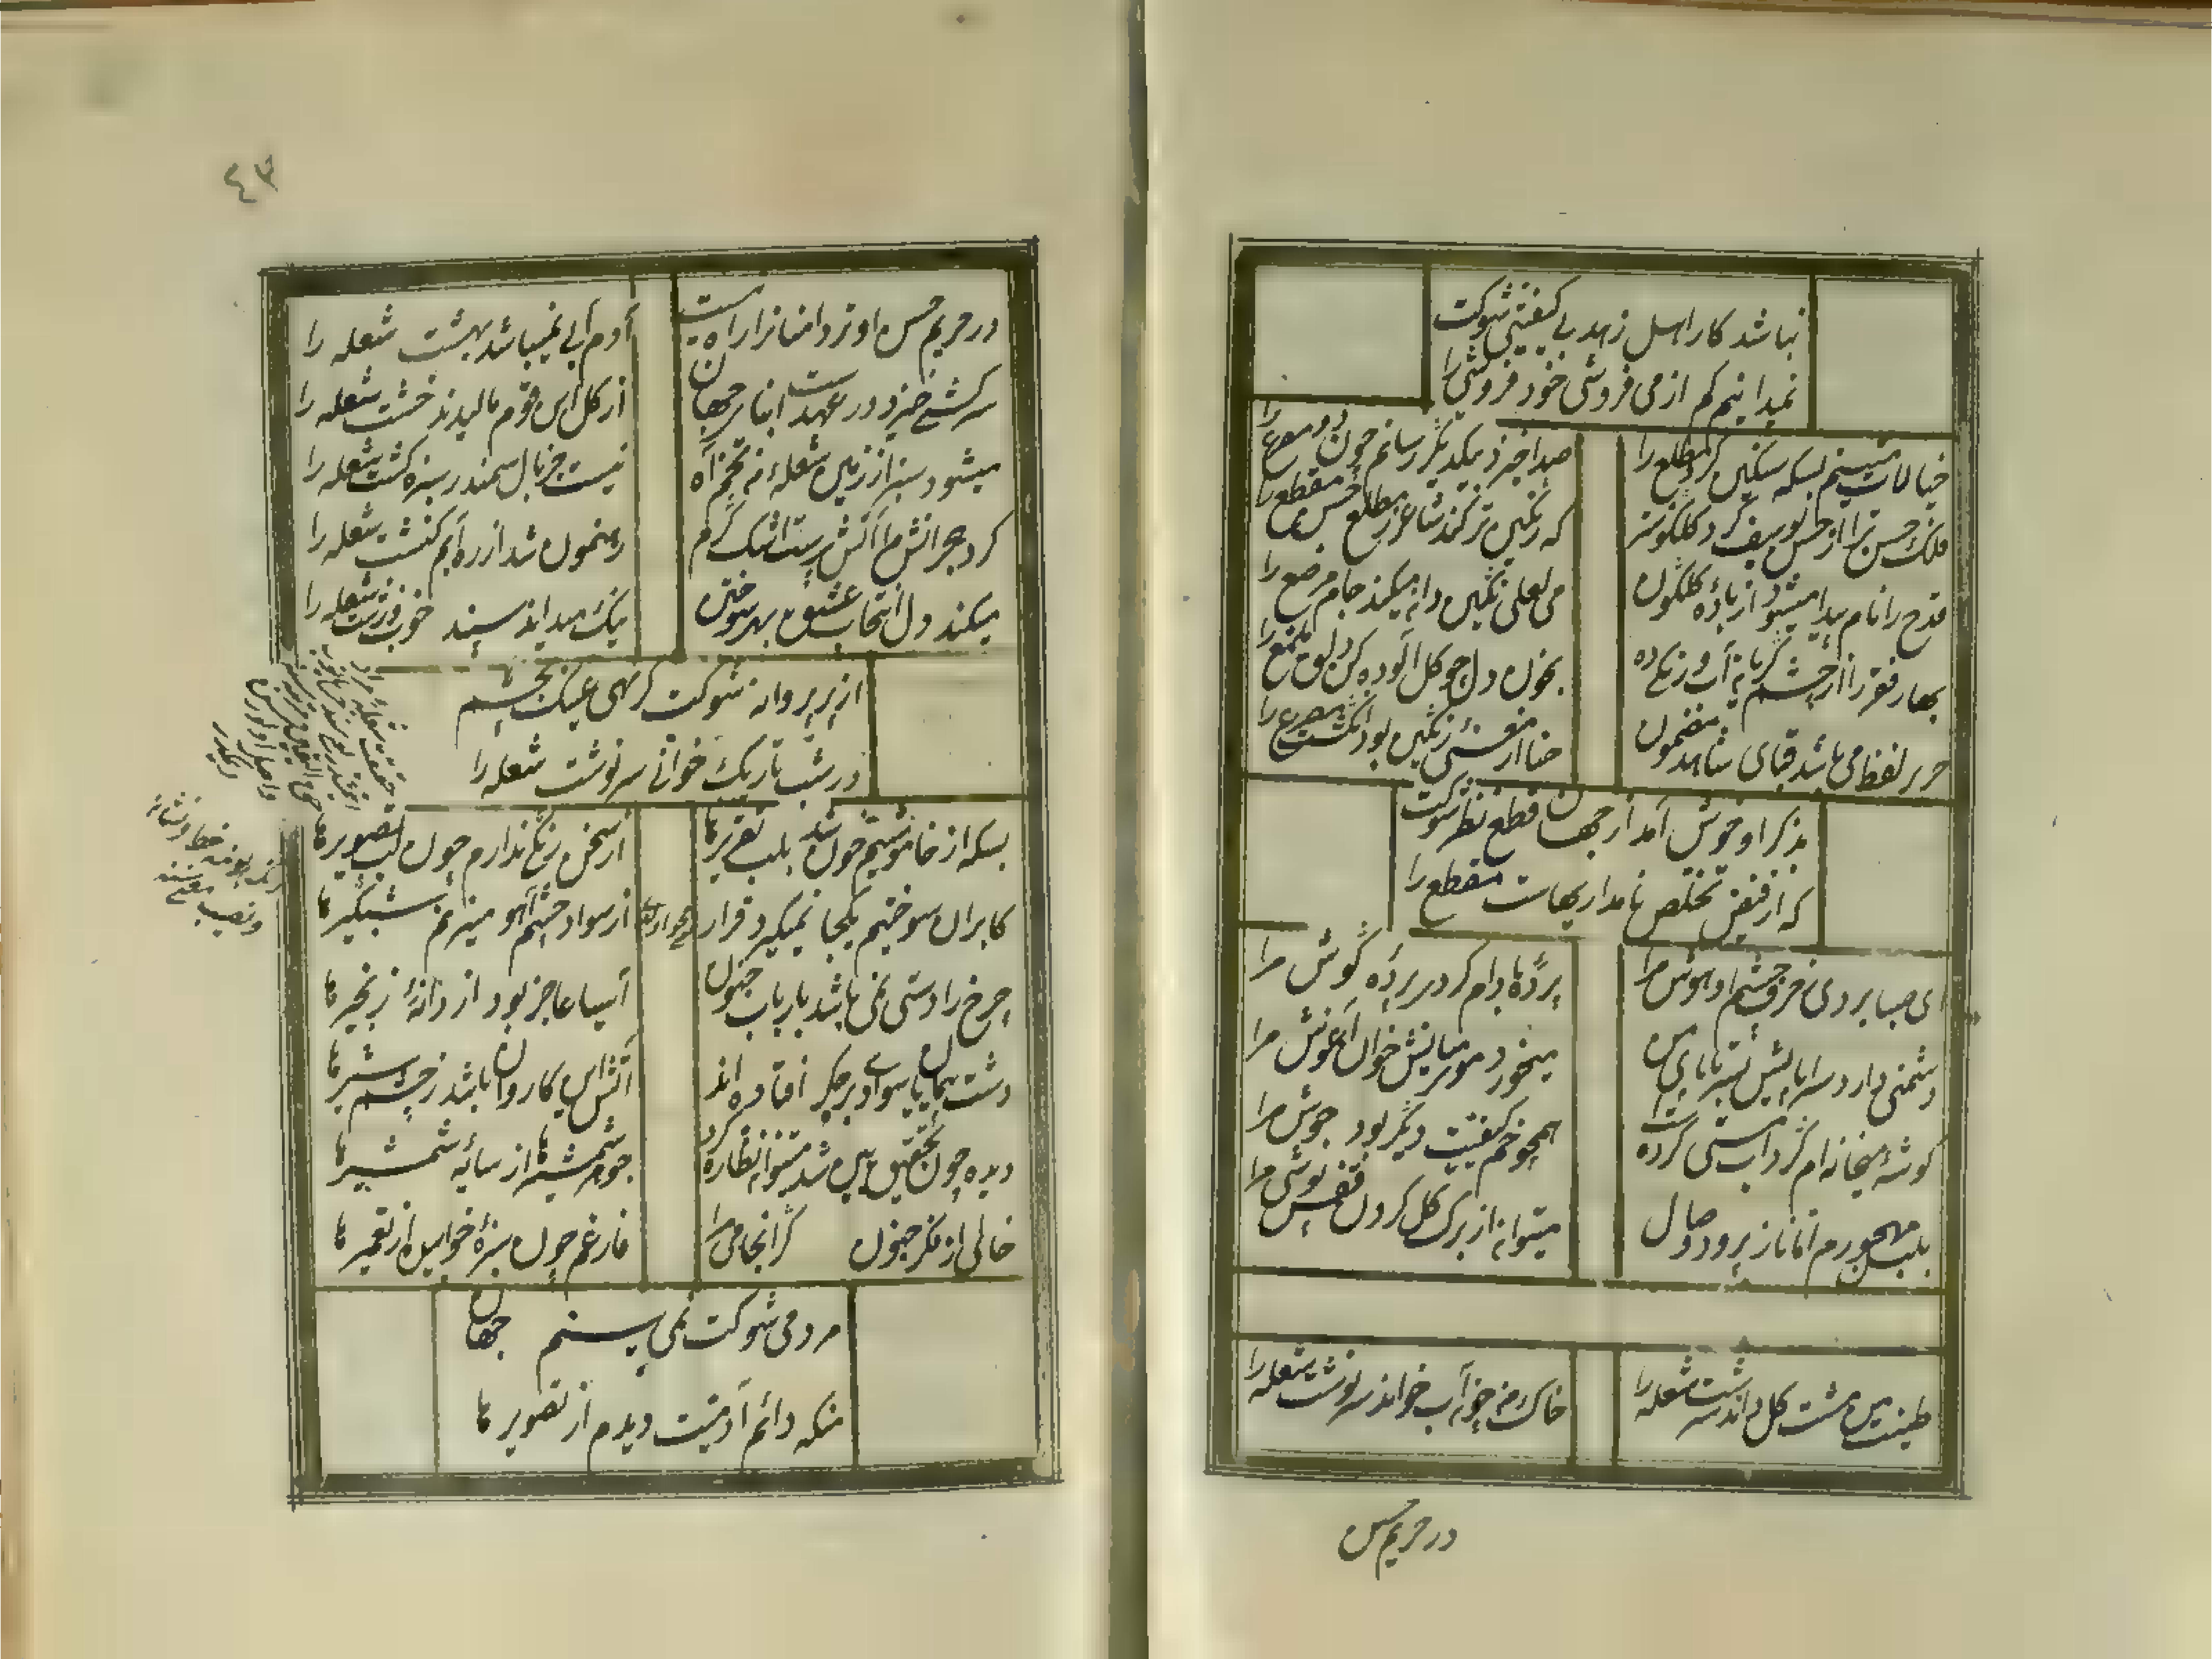 نباشد کار اهل زهد بی کیفیتی شوکت
نمیدانیم کم از می فروشی خود فروشی را
خیالات متینم بسکه سنگین کرد مطلع را
صدا خیزد بیکدیگر رسانم چون دو مصرع را
فلک حسن ترا از حسن یوسف کرد کلکونتر
که رنگین تر کند شاعر ز مطلع حسن مقطع را
قدح را نام پیدا میشود از بادهٔ کلکون
می لعلی نگین دان میکند جام مرصع را
بهار فقر را از چشم کریان آب و رنگی ده
بخون دل چو کل آلوده کن دلق ملمع را
حریر لفظ می باشد قبای شاهد مضمون
حنا از معنی رنگین بود انگشت مصرع را
بذکر او خوش آمد از جهان قطع نظر شوکت
که از فیض تخلص نامداریهاست مقطع را
ای صبا بردی ز حرف چشم او هوش مرا
پردهٔ بادام کردی پردهٔ گوش مرا
دشمنی دارد سراپایش بسر تا پای من
میخورد موی میانش خون آغوش مرا
کوشهٔ میخانه ام گرداب مستی کرده است
همچو خم کیفیت دیگر بود جوش مرا
بلبل مهجورم اما ناز پرورد وصال
میتوان از برک کل کردن قفس پوشی مرا
طینت من مشت کل داند سرشت شعله را
خاک من چون آب خواند سرنوشت شعله را
در حریم حسن
٤٣
در حریم حسن او تر دامنانرا راه نیست
آدم آبی نمیباشد بهشت شعله را
سرکشی خیزد در عهدت ابنای جهان
از کل این قوم مالیدند خشت شعله را
میشود سبز از زمین شعله نه تخم آه
نیست جز بال سمندر سبزه کشت شعله را
کرد هجرانش مرا آتش پرست اشک گرم
رهنمون شد از ره آبم کنشت شعله را
میکند دل انتخاب عشق بهر سوختن
نیک میداند سپند خوب و زشت شعله را
از پر پروانه شوکت کر نهی عینک بچشم
در شب تاریک خوانی سرنوشت شعله را
بسکه از خاموشیم خون شد بلب تقریرها
از سخن رنگی ندارم چون لب تصویرها
کاروان سوختیم یکجا نمیگیرد قرار
از سواد چشم آهو میزنم شبگیرها
چرخ را دستی نمی باشد بارباب جنون
آسیا عاجز بود از دانهٔ زنجیرها
دشت پیمایان سودای او بر جگر افتاده اند
آتش این کاروان باشد ز چشم شیرها
دیده چون تحقیق بین شد میتوان نظاره کرد
جوهر شمشیرها از سایهٔ شمشیرها
خالی از فکر جنون گر انجامی مرا
فارغم چون سبزهٔ خوابیده از تعمیرها
مردمی شوکت نمی بینم جهان
منکه دائم آدمیت دیدم از تصویرها